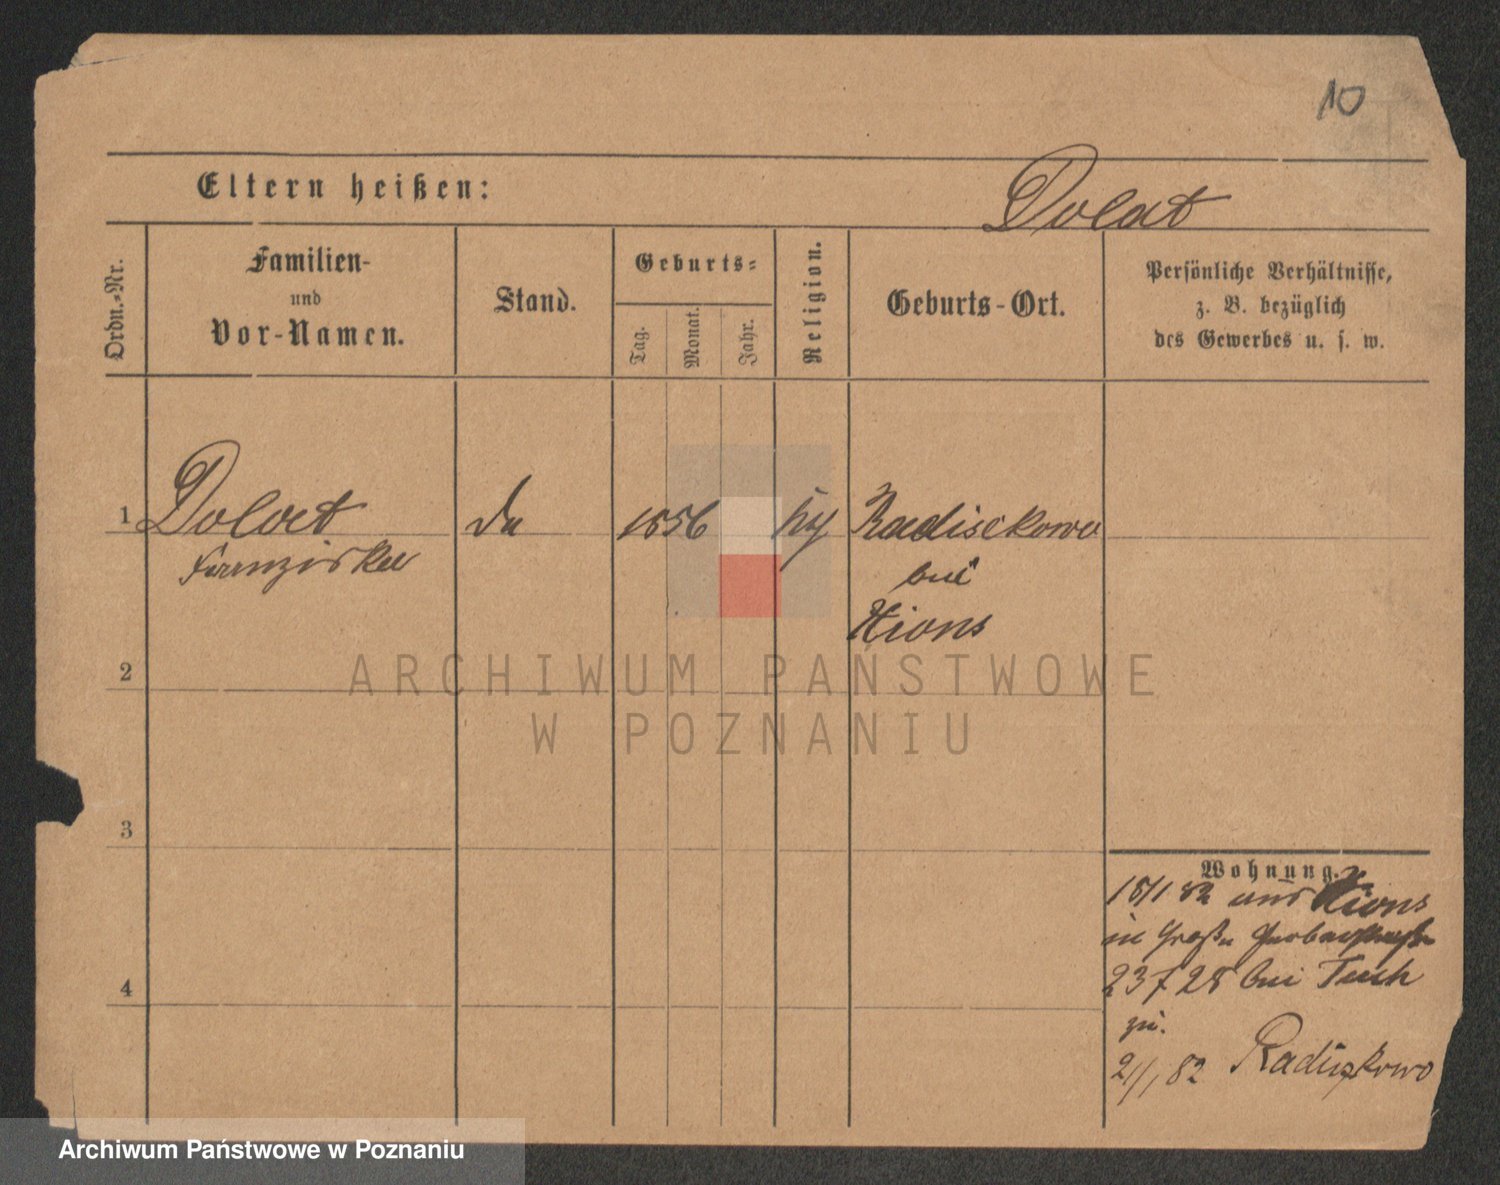 10
Eltern heißen:
Dolat
Ordn.-Nr.
Familien-
und
Vor-Namen.
Stand.
Geburts-
Tag.
Monat.
Jahr.
Religion.
Geburts-Ort.
Persönliche Verhältnisse,
z. B. bezüglich
des Gewerbes u. s. w.
1 Dolat 1856 Radischkowo
Franziska
bei
Xions
2
ARCHIWUM PAŃSTWOWE
W POZNANIU
3
Wohnung.
18/1 82 aus Xions
in Große
23 f 28 bei
zu.
21/1, 82 Radiszkowo
4
Archiwum Państwowe w Poznaniu